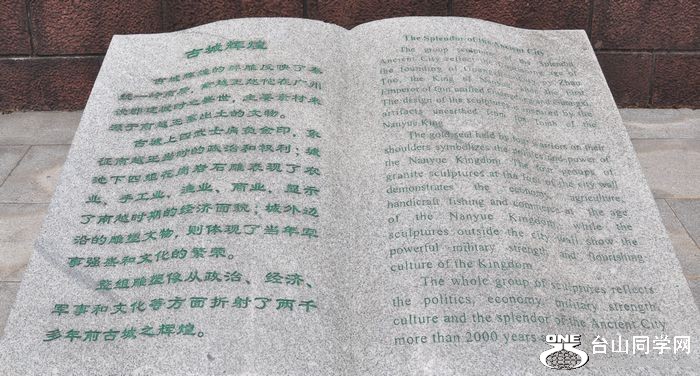 古城辉煌
古城辉煌的群雕反映了秦
统一岭南后，南越王赵佗在广州
设都建城时之盛世，主要素材来
源于南越王墓出土的文物。
古城上四武士肩负金印，象
征南越王当时的政治和权利；城
地下四组花岗岩石雕表现了农
业、手工业、渔业、商业，显示
了南越时期的经济面貌；城外边
沿的雕塑文物，则体现了当年军
事强盛和文化的繁荣。
整组雕塑像从政治、经济、
军事和文化等方面折射了两千
多年前古城之辉煌。
The Splendor of the Ancient City
The group sculptures the Splendid
Ancient City reflect the flourishing age
the founding of Guangzhou city by Zhao
Tuo, the King of Nanyue, while the First
Emperor of Qin unified
The design of the sculptures is inspired by the
artifacts unearthed from the tomb of the
Nanyue King
The gold seal held by four warriors on their
shoulders symbolizes the politics and power of
the Nanyue Kingdom. The four groups of
granite sculptures at the foot of the city wall
demonstrates the economy, agriculture,
handicraft, fishing and commerce at the age
of the Nanyue Kingdom, while the
sculptures outside the city wall show the
powerful military strength and flourishing
culture of the Kingdom.
The whole group of sculptures reflects
the politics, economy, military strength,
culture and the splendor of the Ancient City
more than 2000 years
ONE 台山同学网